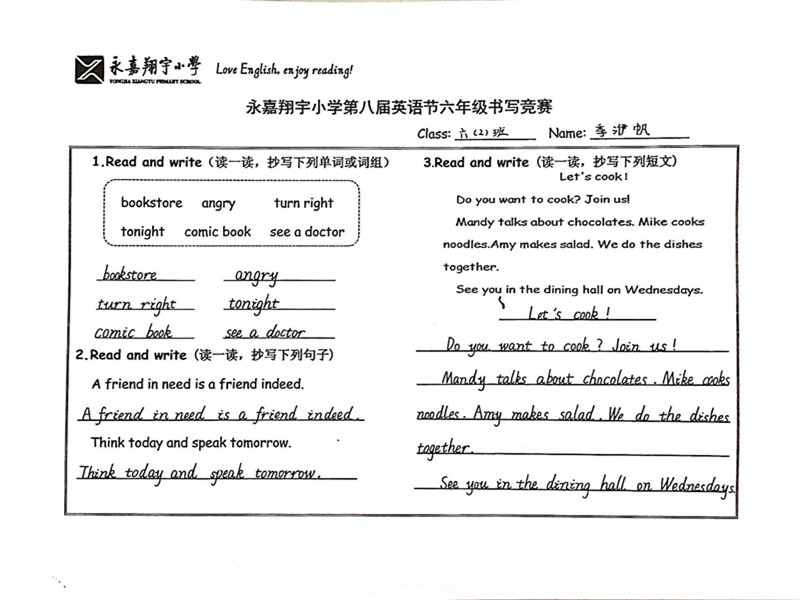 永嘉翔宇小學
YONGJIA XIANGYU PRIMARY SCHOOL
Love English, enjoy reading!
永嘉翔宇小学第八届英语节六年级书写竞赛
Class: 六(2)班 Name: 李 帆
1.Read and write（读一读，抄写下列单词或词组）
bookstore angry turn right
tonight comic book see a doctor
bookstore angry
turn right tonight
comic book see a doctor
2.Read and write (读一读，抄写下列句子)
A friend in need is a friend indeed.
A friend in need is a friend indeed.
Think today and speak tomorrow.
Think today and speak tomorrow.
3.Read and write (读一读，抄写下列短文)
Let's cook!
Do you want to cook? Join us!
Mandy talks about chocolates. Mike cooks
noodles.Amy makes salad. We do the dishes
together.
See you in the dining hall on Wednesdays.
Let's cook!
Do you want to cook? Join us!
Mandy talks about chocolates. Mike cooks
noodles. Amy makes salad. We do the dishes
together.
See you in the dining hall on Wednesdays